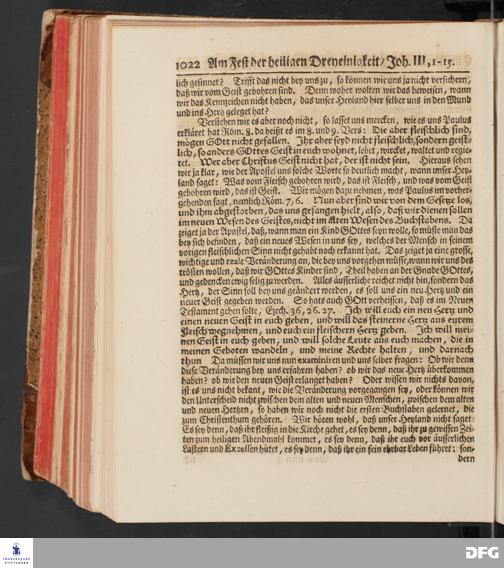 1022 Am Fest der heiligen Dreyeinigkeit/ Joh. III, 1-15.
lich gesinnet? Trifft das nicht bey uns zu, so können wir uns ja nicht versichern,
daß wir vom Geist gebohren sind. Denn woher wolten wir das beweisen, wann
wir das Kennzeichen nicht haben, das unser Heyland hier selber uns in den Mund
und ins Hertz geleget hat?
Verstehen wir es aber noch nicht, so lasset uns mercken, wie es uns Paulus
erkläret hat Röm. 8. da heißt es im 8. und 9. Vers: Die aber fleischlich sind,
mögen GOtt nicht gefallen. Ihr aber seyd nicht fleischlich, sondern geist-
lich, so anders GOttes Geist in euch wohnet, lebet, wircket, waltet und regie-
ret. Wer aber Christus Geist nicht hat, der ist nicht sein. Hieraus sehen
wir ja klar, wie der Apostel uns solche Worte so deutlich macht, wann unser Hey-
land saget: Was vom Fleisch gebohren wird, das ist Fleisch, und was vom Geist
gebohren wird, das ist Geist. Wir mögen dazu nehmen, was Paulus im vorher-
gehenden sagt, nemlich Röm. 7, 6. Nun aber sind wir von dem Gesetze los,
und ihm abgestorben, das uns gefangen hielt, also, daß wir dienen sollen
im neuen Wesen des Geistes, nicht im alten Wesen des Buchstabens. Da
zeiget ja der Apostel, daß, wann man ein Kind GOttes seyn wolle, so müsse man das
bey sich befinden, daß ein neues Wesen in uns sey, welches der Mensch in seinem
vorigen fleischlichen Sinn nicht gehabt noch erkannt hat. Das zeiget ja eine grosse,
wichtige und reale Veränderung an, die bey uns vorgehen müsse, wann wir uns des
trösten wollen, daß wir GOttes Kinder sind, Theil haben an der Gnade GOttes,
und gedencken ewig selig zu werden. Alles äusserliche reichet nicht hin, sondern das
Hertz, der Sinn soll bey uns geändert werden, es soll uns ein neu Hertz und ein
neuer Geist gegeben werden. So hats auch GOtt verheissen, daß es im Neuen
Testament gehen solte, Ezech. 36, 26. 27. Ich will euch ein neu Hertz und
einen neuen Geist in euch geben, und will das steinerne Hertz aus eurem
Fleisch wegnehmen, und euch ein fleischern Hertz geben. Ich will mei-
nen Geist in euch geben, und will solche Leute aus euch machen, die in
meinen Geboten wandeln, und meine Rechte halten, und darnach
thun Da müssen wir uns nun examiniren und uns selber fragen: Ob wir denn
diese Veränderung bey uns erfahren haben? ob wir das neue Hertz überkommen
haben? ob wir den neuen Geist erlanget haben? Oder wissen wir nichts davon,
ist es uns nicht bekant, wie die Veränderung vorgegangen sey, oder können wir
den Unterscheid nicht zwischen dem alten und neuen Menschen, zwischen dem alten
und neuen Hertzen, so haben wir noch nicht die ersten Buchstaben gelernet, die
zum Christenthum gehören. Wir hören wohl, daß unser Heyland nicht saget:
Es sey denn, daß ihr fleißig in die Kirche gehet, es sey denn, daß ihr zu gewissen Zei-
ten zum heiligen Abendmahl kommet, es sey denn, daß ihr euch vor äusserlichen
Lastern und Excessen hütet, es sey denn, daß ihr ein fein ehrbar Leben führet; son-
dern
FRANCKESCHE
STIFTUNGEN
DFG